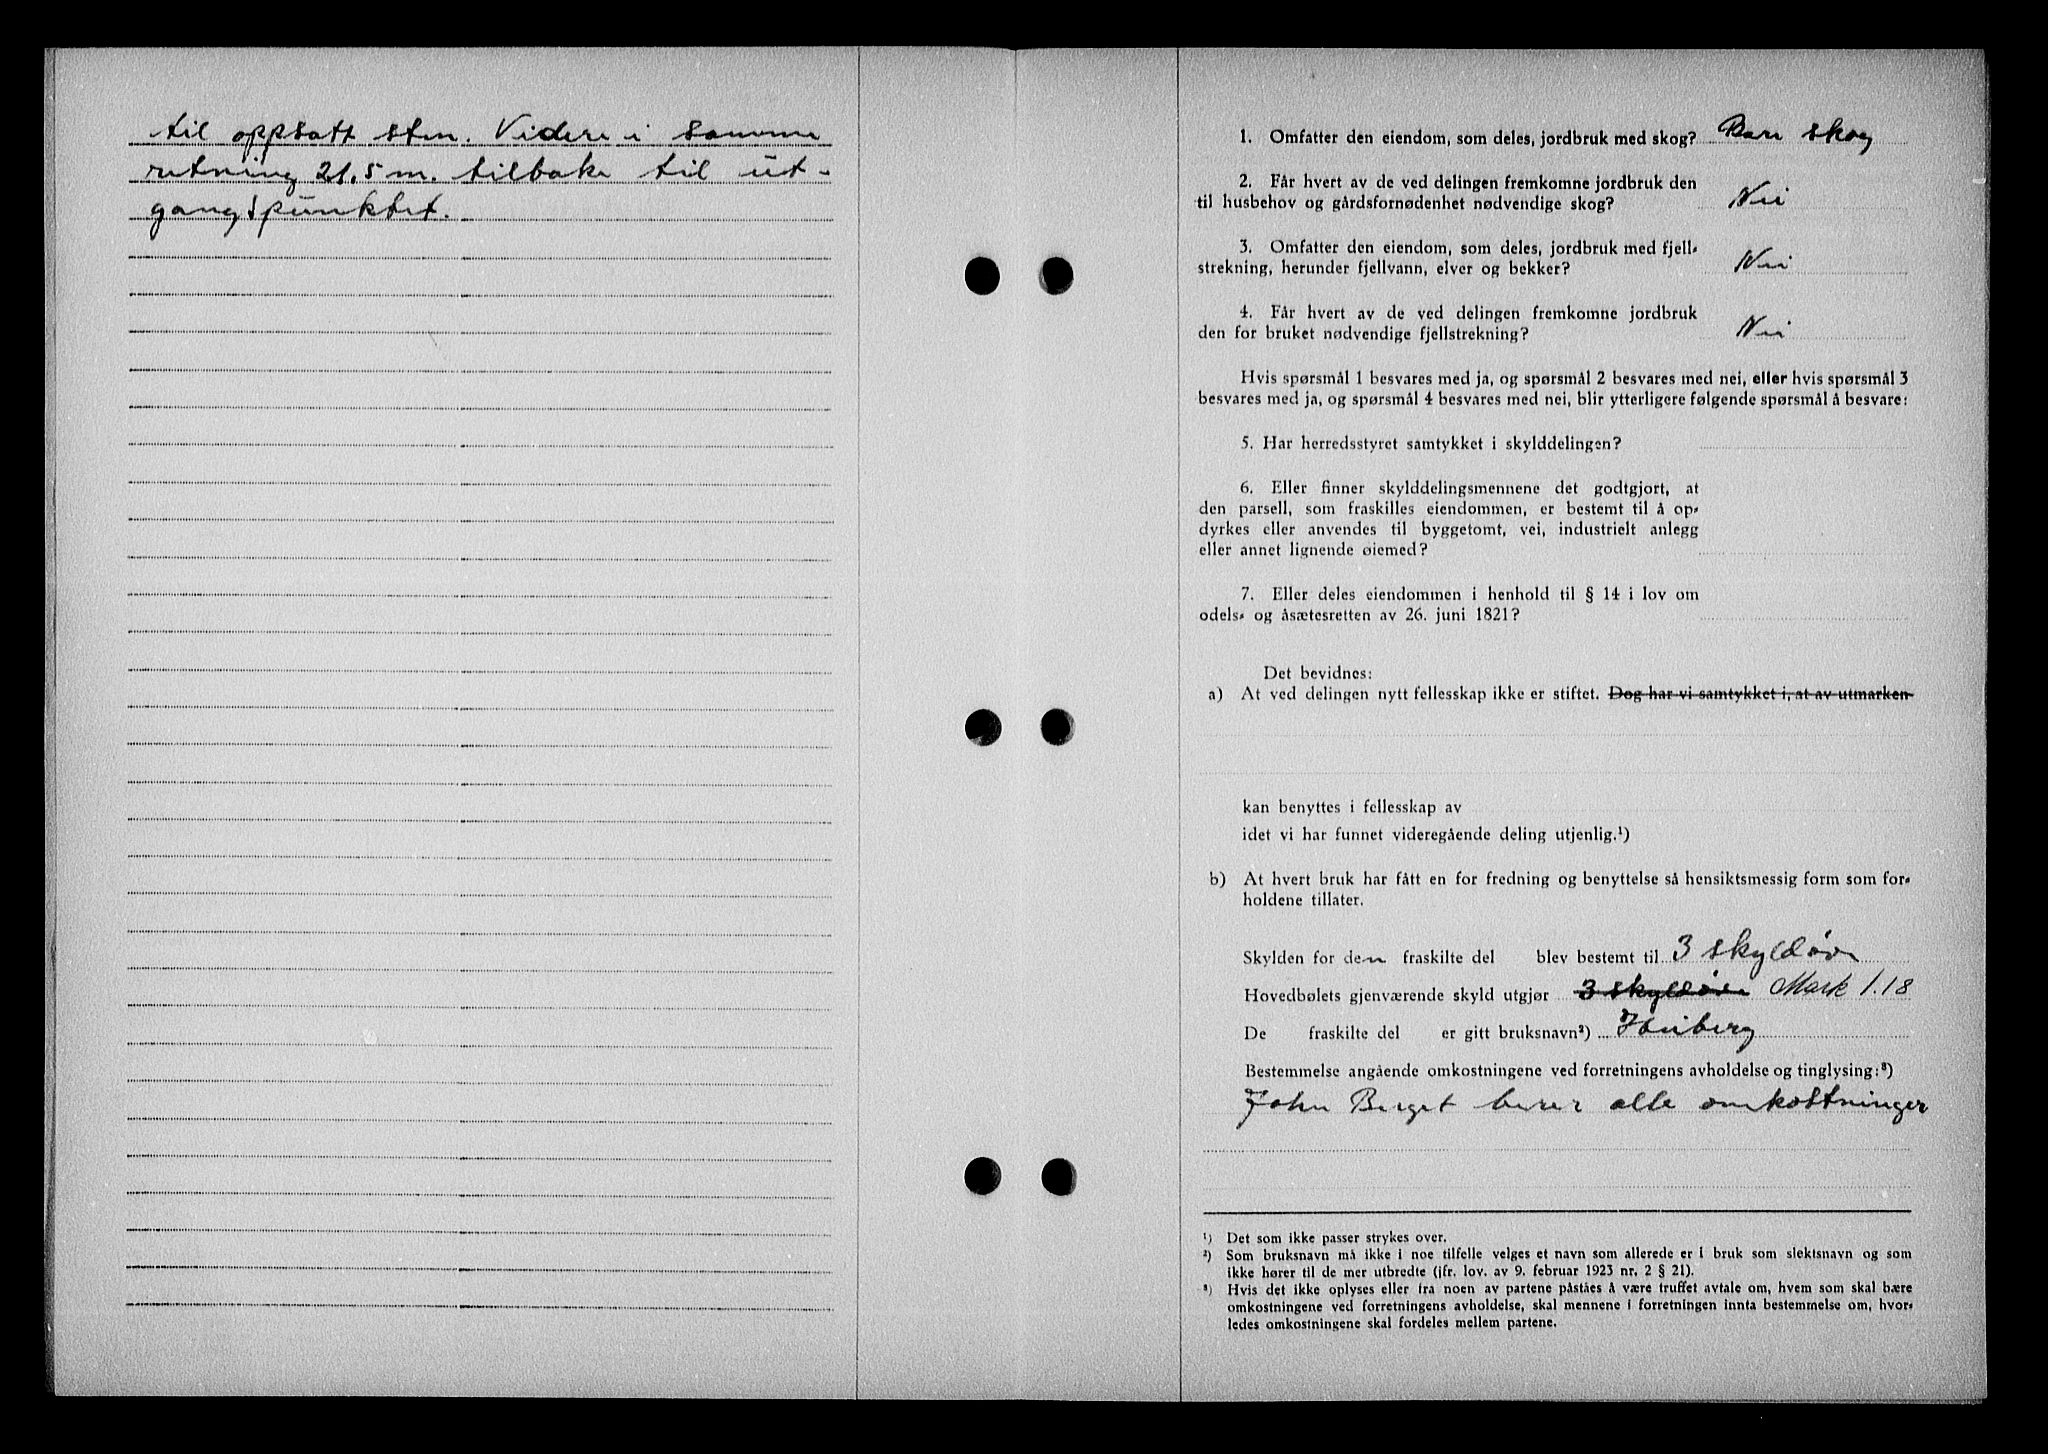 til oppsatt sten. Videre i samme
retning 21.5 m. tilbake til ut-
gangspunktet.
1. Omfatter den eiendom, som deles, jordbruk med skog? Bare skog
2. Får hvert av de ved delingen fremkomne jordbruk den
til husbehov og gårdsfornødenhet nødvendige skog? Nei
3. Omfatter den eiendom, som deles, jordbruk med fjell-
strekning, herunder fjellvann, elver og bekker? Nei
4. Får hvert av de ved delingen fremkomne jordbruk
den for bruket nødvendige fjellstrekning? Nei
Hvis spørsmål 1 besvares med ja, og spørsmål 2 besvares med nei, eller hvis spørsmål 3
besvares med ja, og spørsmål 4 besvares med nei, blir ytterligere følgende spørsmål å besvare:
5. Har herredsstyret samtykket i skylddelingen?
6. Eller finner skylddelingsmennene det godtgjort, at
den parsell, som fraskilles eiendommen, er bestemt til å op-
dyrkes eller anvendes til byggetomt, vei, industrielt anlegg
eller annet lignende øiemed?
7. Eller deles eiendommen i henhold til § 14 i lov om
odels- og åsætesretten av 26. juni 1821?
Det bevidnes:
a) At ved delingen nytt fellesskap ikke er stiftet. Dog har vi samtykket i, at av utmarken
kan benyttes i fellesskap av
idet vi har funnet videregående deling utjenlig.¹)
b) At hvert bruk har fått en for fredning og benyttelse så hensiktsmessig form som for-
holdene tillater.
Skylden for den fraskilte del blev bestemt til 3 skyldøre
Hovedbølets gjenværende skyld utgjør 3 skyldøre Mark 1.18
De fraskilte del er gitt bruksnavn²)
Bestemmelse angående omkostningene ved forretningens avholdelse og tinglysing:³)
John Berget bærer alle omkostninger
¹) Det som ikke passer strykes over.
²) Som bruksnavn må ikke i noe tilfelle velges et navn som allerede er i bruk som slektsnavn og som
ikke hører til de mer utbredte (jfr. lov. av 9. februar 1923 nr. 2 § 21).
³) Hvis det ikke oplyses eller fra noen av partene påståes å være truffet avtale om, hvem som skal bære
omkostningene ved forretningens avholdelse, skal mennene i forretningen innta bestemmelse om, hvor-
ledes omkostningene skal fordeles mellem partene.